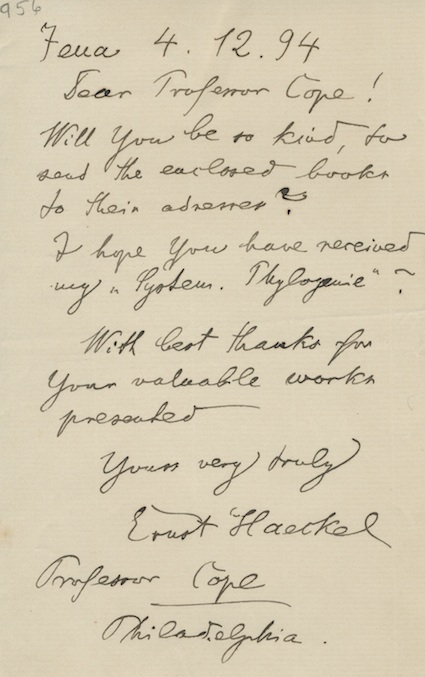 956
Jena 4. 12. 94
Dear Professor Cope!
Will You be so kind, to
send the enclosed books
to their adresses?
I hope You have received
my „System. Phylogenie" ?
With best thanks for
Your valuable works
presented
Yours very truly
Ernst Haeckel
Professor Cope
Philadelphia.